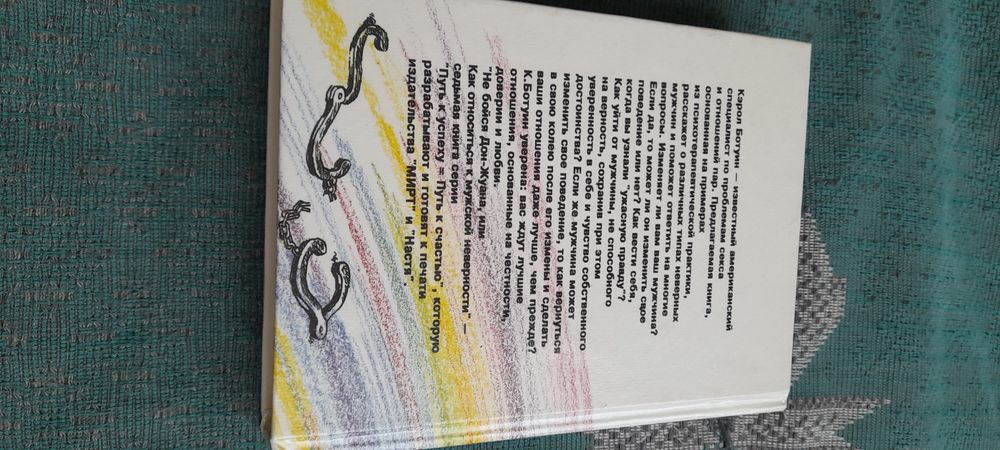 Кэрол Ботуин — известный американский
специалист по проблемам секса
и отношений пар. Предлагаемая книга,
основанная на примерах
из психотерапевтической практики,
расскажет о различных типах неверных
мужчин и поможет ответить на многие
вопросы. Изменяет ли вам ваш мужчина?
Если да, то может ли он изменить свое
поведение или нет? Как вести себя,
когда вы узнали "ужасную правду"?
Как уйти от мужчины, не способного
на верность, сохранив при этом
уверенность в себе и чувство собственного
достоинства? Если же мужчина может
изменить свое поведение, то как вернуться
в свою колею после его измены и сделать
ваши отношения даже лучше, чем прежде?
К.Ботуин уверена: вас ждут лучшие
отношения, основанные на честности,
доверии и любви.
"Не бойся Дон-Жуана, или
Как относиться к мужской неверности" —
седьмая книга серии
"Путь к успеху = Путь к счастью", которую
разрабатывают и готовят к печати
издательства "МИРТ" и "Настя".